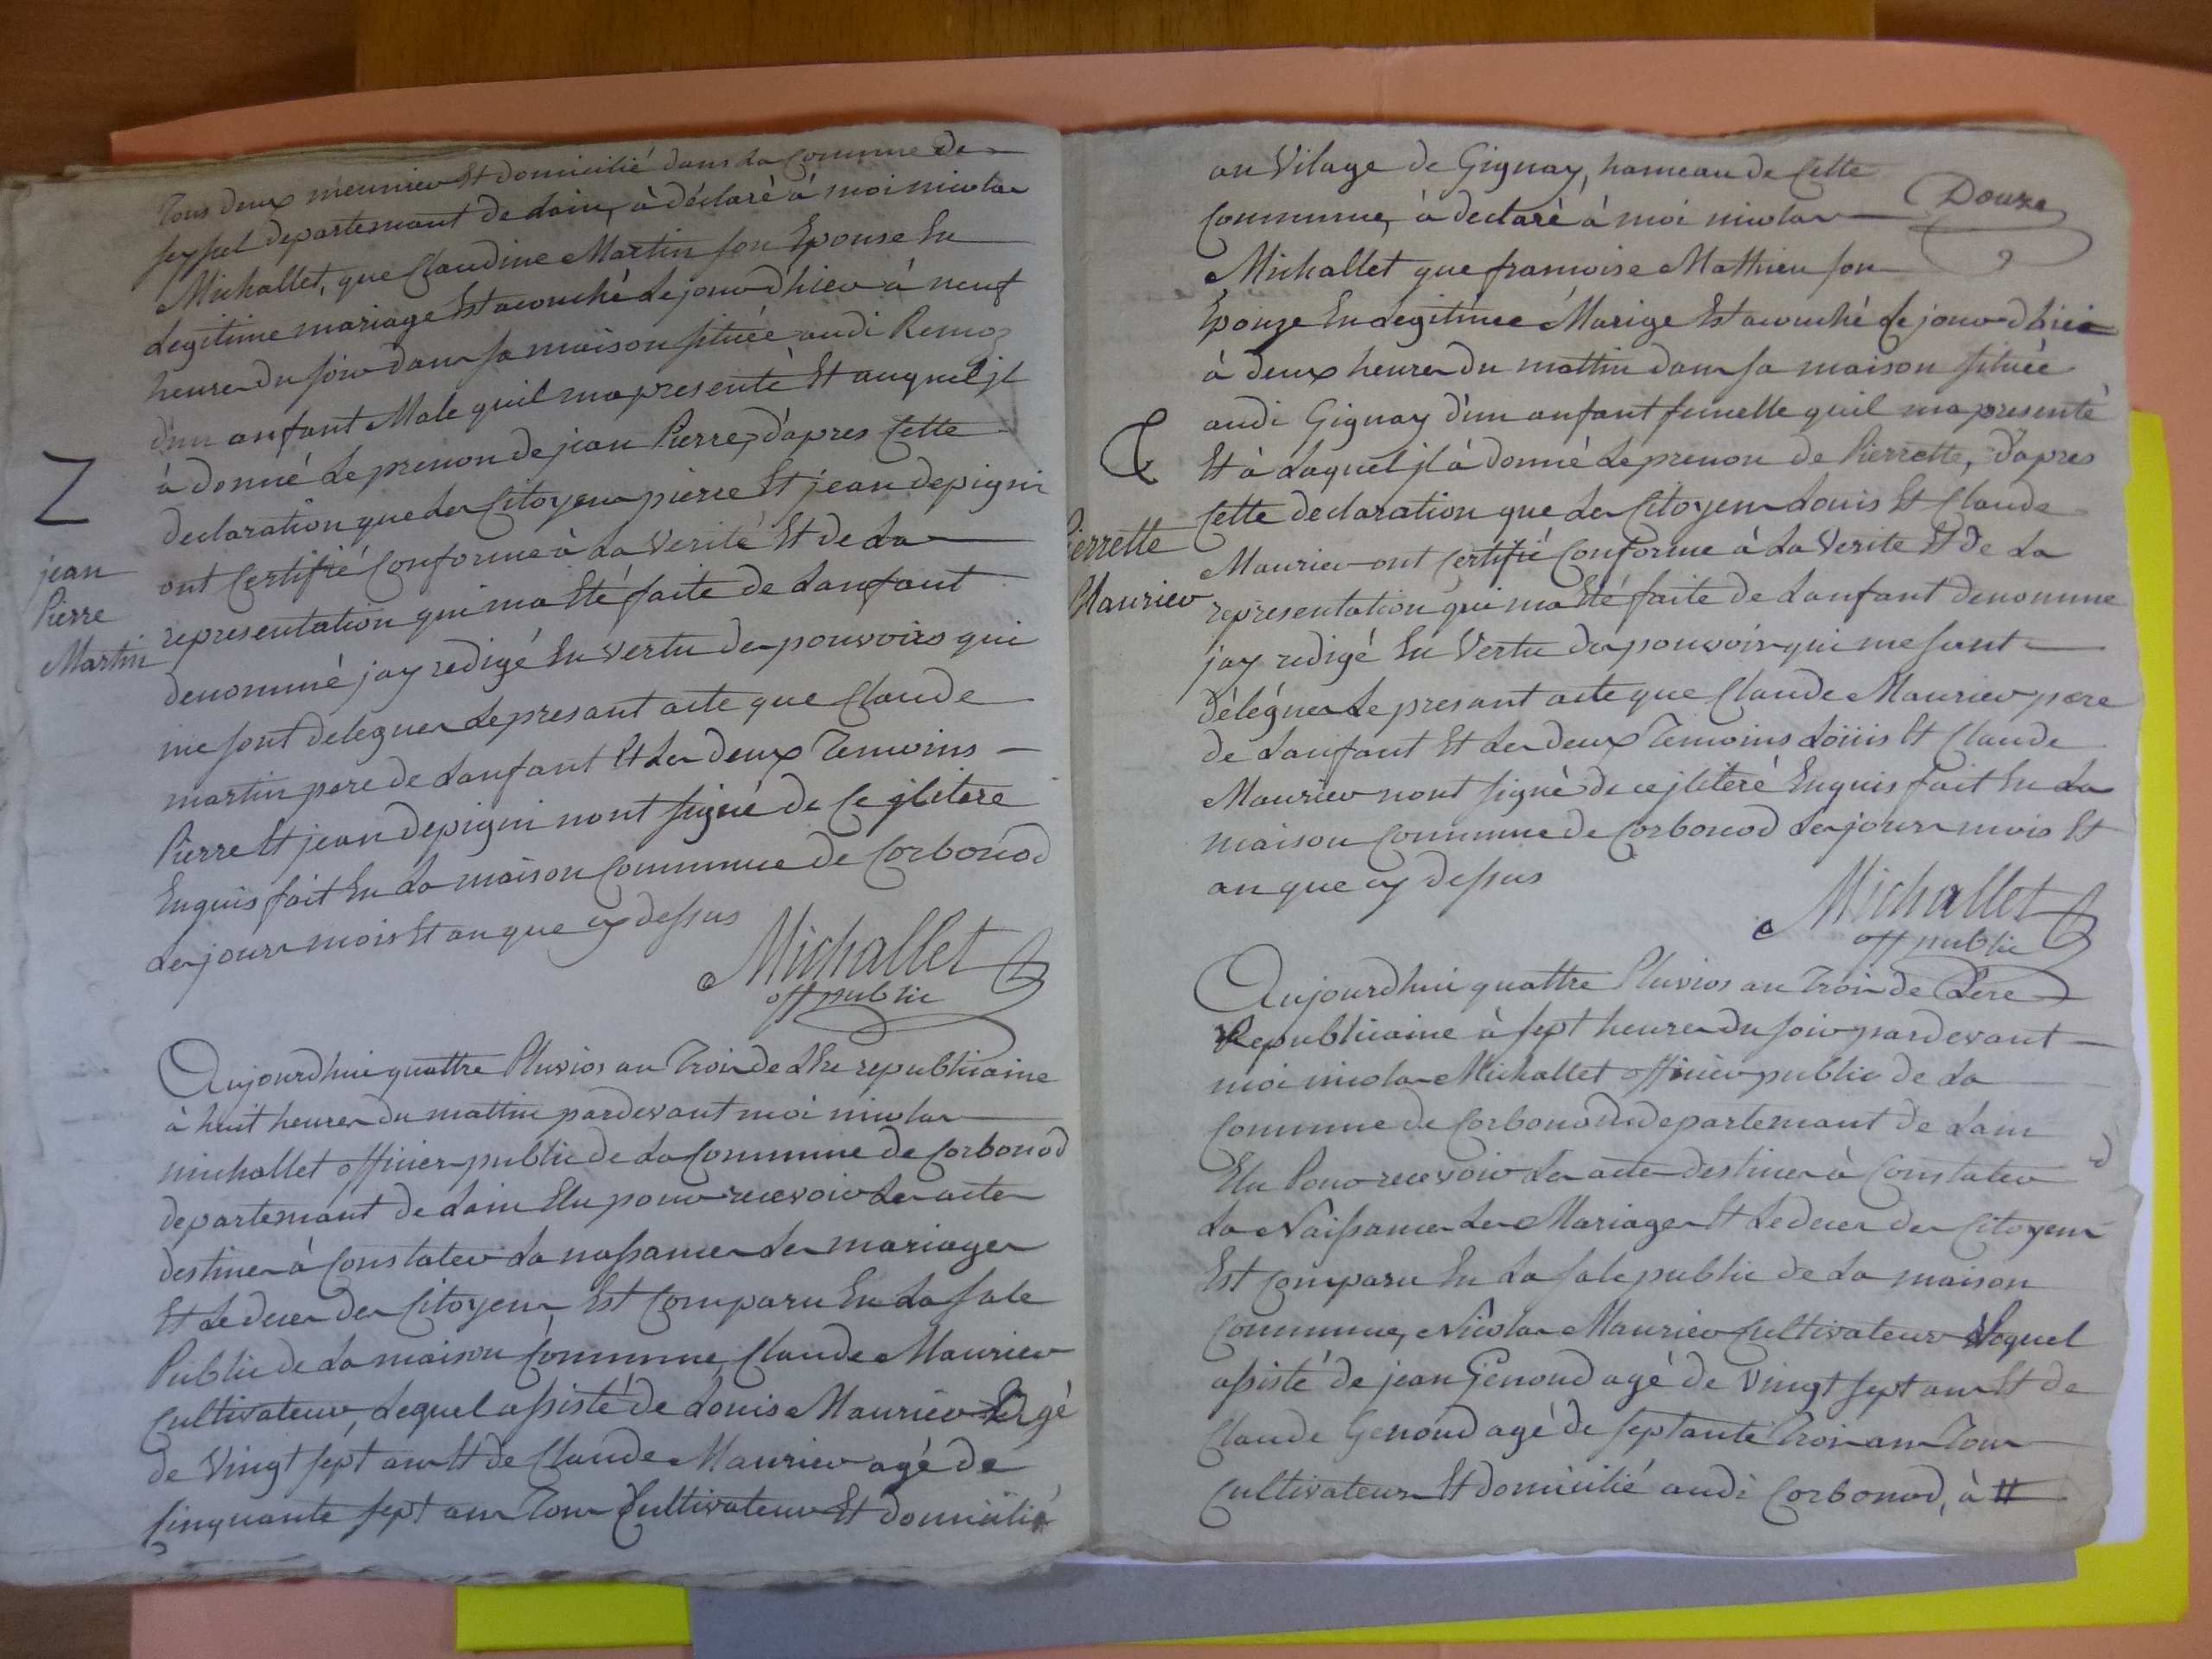 Tous deux meunier Et domicilié dans La Commune de
seyssel departemant de Lain, à déclaré à moi nicolas
Michallet, que Claudine Martin son Epouse En
Legitime mariage Est acouché Le jour d'hier à neuf
heures du soir dans sa maison située audi Remoz
d'un anfant Male quil ma presenté Et auquel jl
à donné Le prenon de jean Pierre, d'apres Cette
declaration que Les Citoyens pierre Et jean depigni
ont Certifié Conforme à La verité Et de La
representation qui ma Eté faite de Lanfant
denommé jay redigé En vertu des pouvoirs qui
me sont deleguer Le presant acte que Claude
martin pere de Lanfant Et Les deux Temoins
Pierre Et jean depigni nont signé de Ce jlitere
Enquis fait En La maison Commune de Corbonod
Les jours mois Et an que cy dessus
Michallet
off public
jean
Pierre
Martin
Aujourdhui quattre Pluvios an Trois de LEre republicaine
à huit heures du mattin pardevant moi nicolas
michallet officier public de La Commune de Corbonod
departemant de Lain Elu pour recevoir Les actes
destines à Constater La nassances Les mariages
Et Le deces des Citoyens, Est Comparu En La sale
Public de La maison Commune, Claude Maurier
Cultivateur, Lequel assisté de Louis Maurier Agé
de vingt sept ans Et de Claude Maurier agé de
sinquante sept ans Tous Cultivateur Et domicilié
Douze
au Vilage de Gignay, hameau de Cette
Commune, à declaré à moi nicolas
Michallet que francoise Mathieu son
Epouze En Legitimee Marige Est acouché Le jour d hier
à deux heures du mattin dans sa maison située
audi Gignay d'un anfant fumelle quil ma presenté
Et à Laquel jl à donné Le prenon de Pierrette, d'apres
Cette declaration que Les Citoyens Louis Et Claude
Maurier ont Certifié Conforme à La Verite Et de La
representation qui ma Eté faite de Lanfant denomme
jay redigé En Vertu des pouvoirs qui me sont
délégués Le presant acte que Claude Maurier pere
de Lanfant Et Les deux Temoins Loüis Et Claude
Maurier nont signé de ce jliteré Enquis fait En La
maison Commune de Corbonod Les jours mois Et
an que cy dessus
Michallet
off public
Pierrette
Maurier
Aujourdhui quattre Pluvios an Trois de Lere
Republicaine à sept heures du soir pardevant
moi nicolas Michallet officier public de La
Commune de Corbonod departemant de Lain
Elu Pour recevoir Les actes destines à Constater
La Naissances Les Mariages Et Le deces des Citoyens
Est Comparu En La sale public de La maison
Commune, Nicolas Maurier Cultivateur Loquel
assisté de jean Genoud agé de vingt sept ans Et de
Claude Genoud agé de septante Trois ans Tous
Cultivateurs Et domicilié audi Corbonod, à